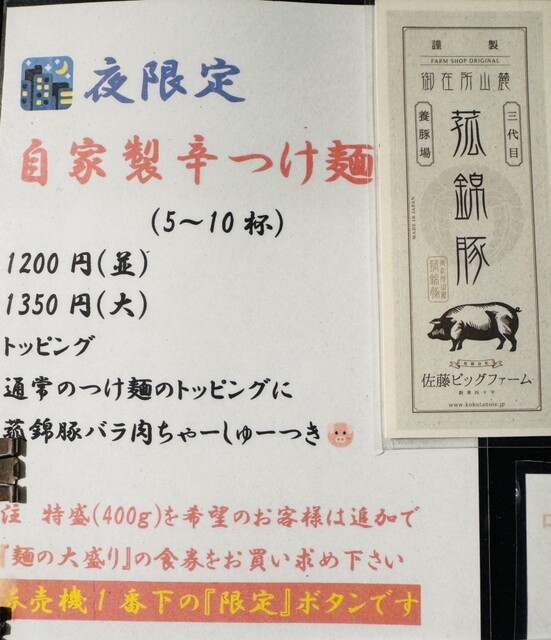 夜限定
自家製辛つけ麺
(5～10杯)
1200円(並)
1350円(大)
トッピング
通常のつけ麺のトッピングに
菰錦豚バラ肉ちゃーしゅーつき
注 特盛(400g)を希望のお客様は追加で
『麺の大盛り』の食券をお買い求め下さい
券売機1番下の『限定』ボタンです
謹製
FARM SHOP ORIGINAL
御在所山麓
三代目
菰錦豚
養豚場
MADE IN JAPAN
佐藤ピッグファーム
www.kokutanton.jp